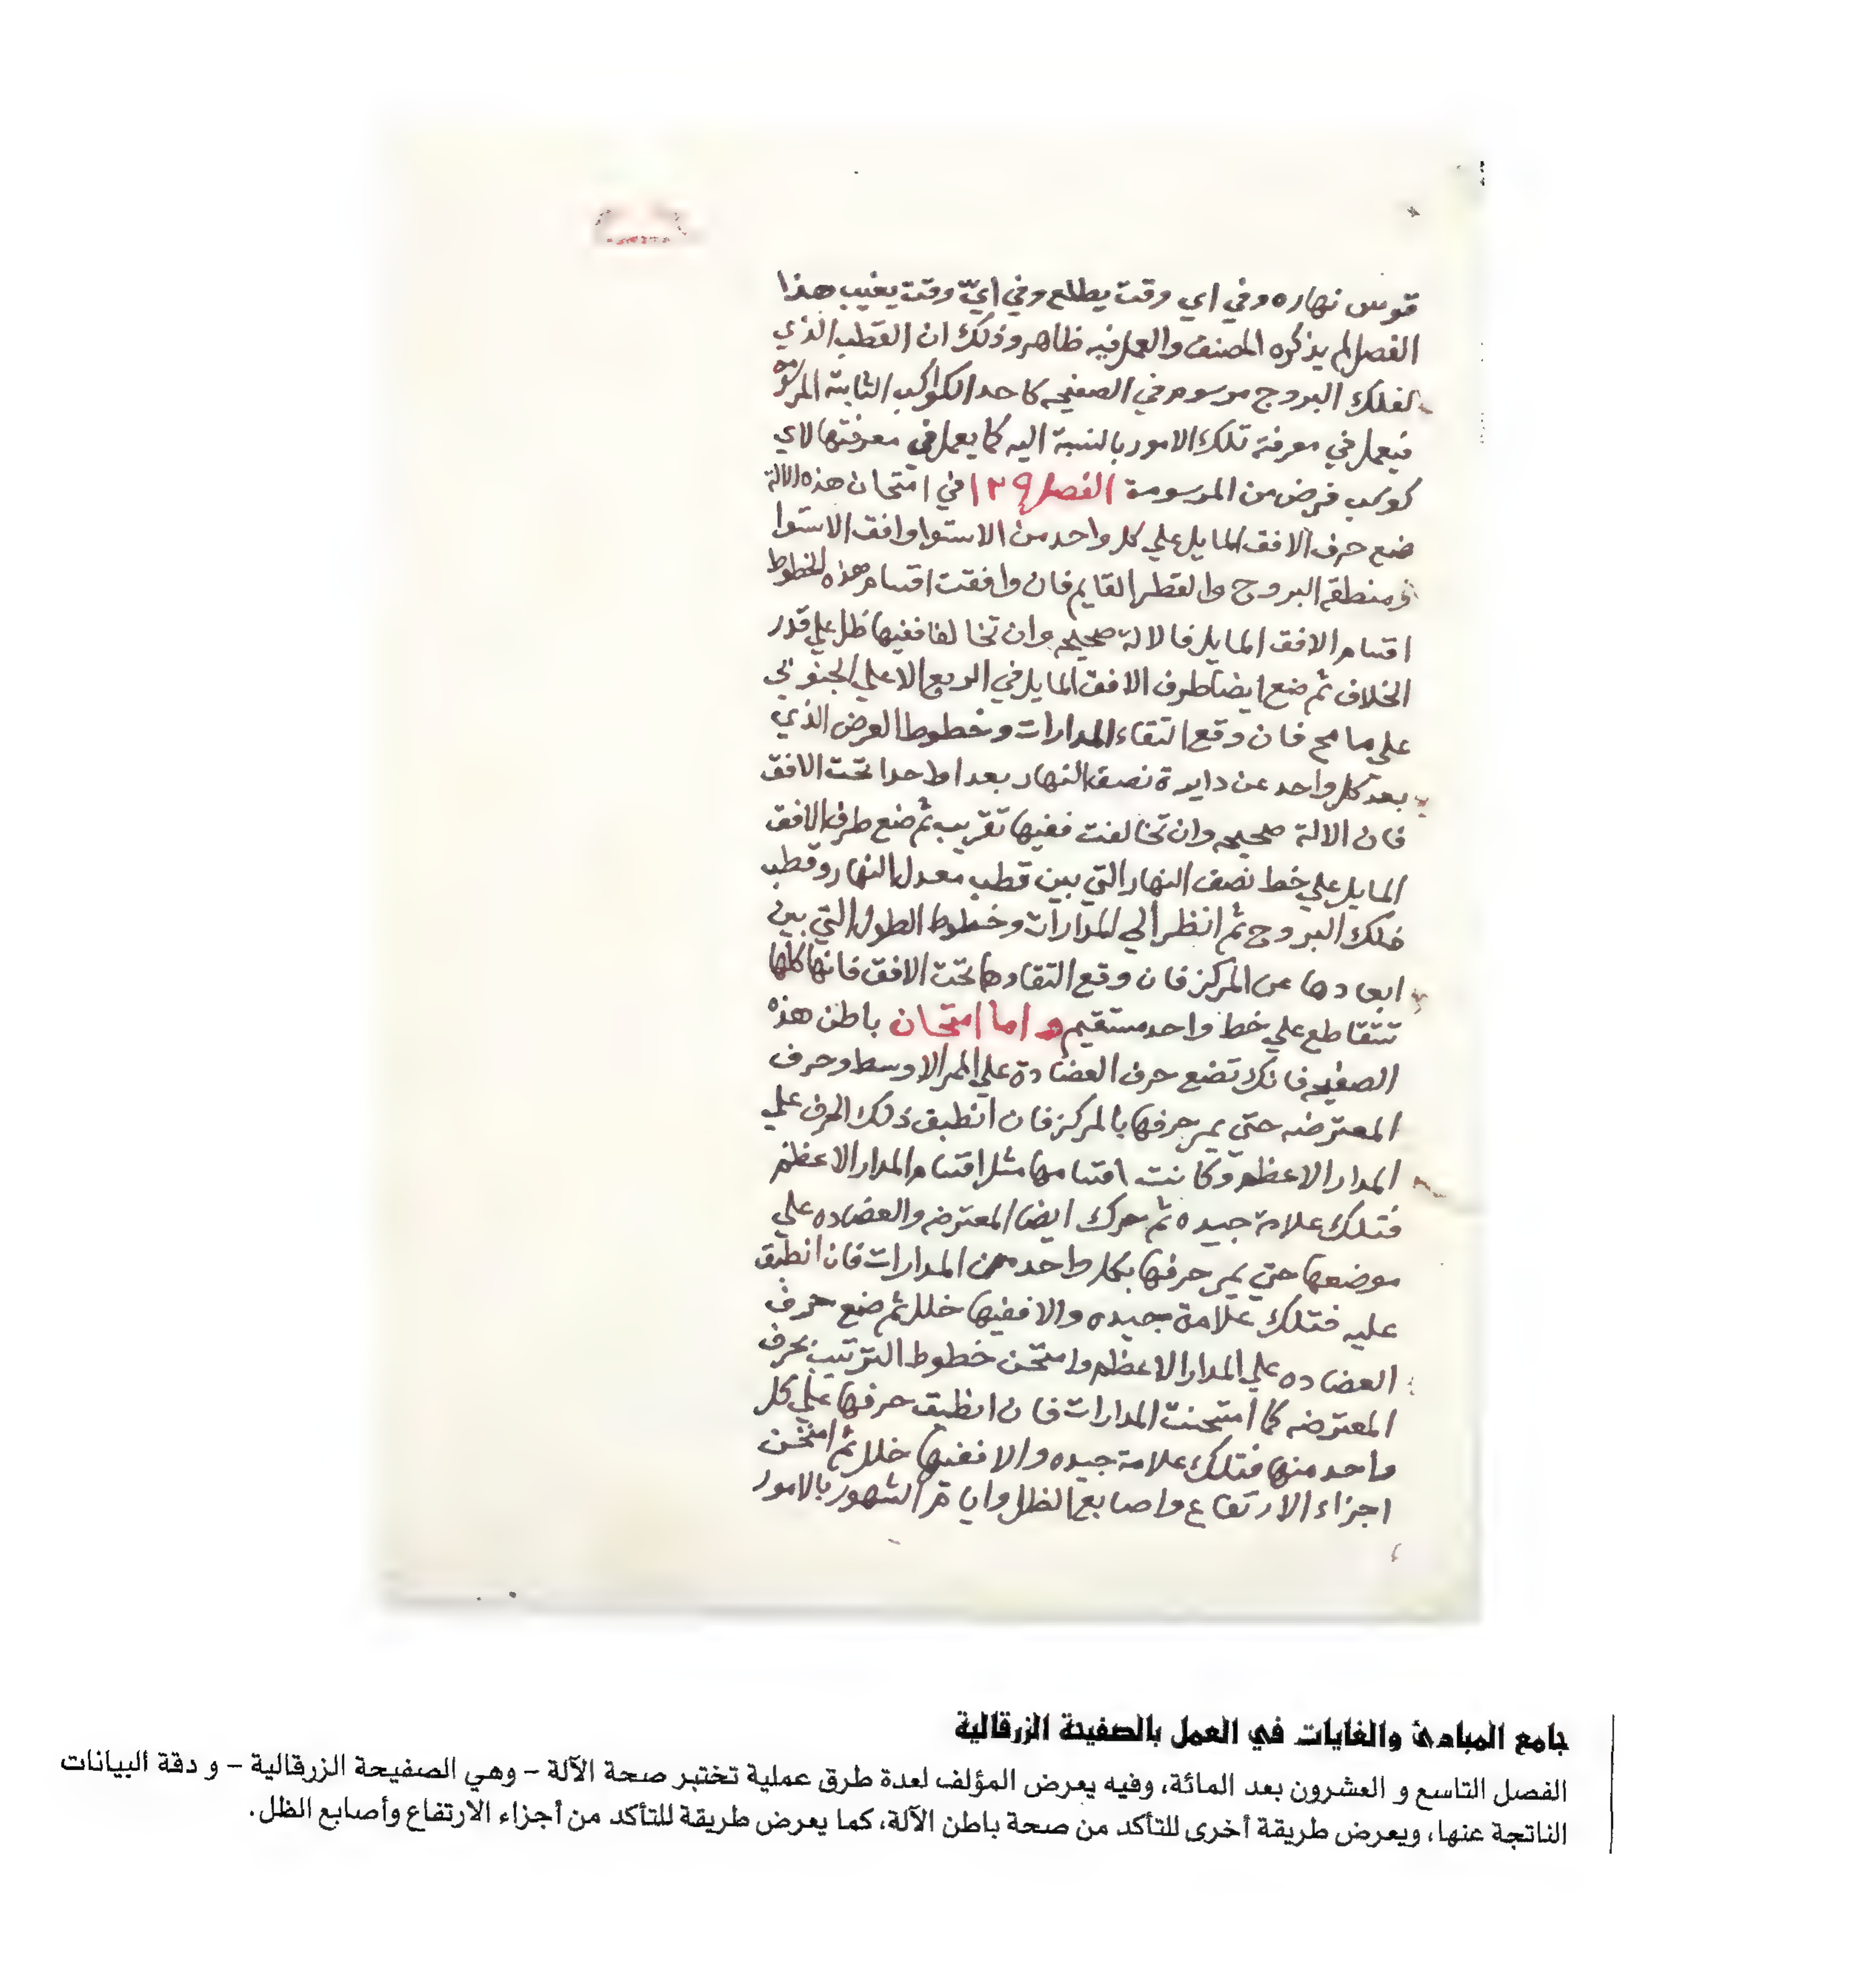 قوس نهاره وفي اي وقت يطلع وفي ايّ وقت يغيب هذا
الفصل لم يذكره المصنف والعمل فيه ظاهر وذلك ان القطب الذي
لفلك البروج مرسوم في الصفيحه كاحد الكواكب الثابتة
فيعمل في معرفة تلك الامور بالنسبة اليه كما يعمل في معرفتها لاي
كوكب فرض من المرسومة الفصل ١٢٩ في امتحان هذه الالة
ضع حرف الافق المايل علي كل واحد من الاستوا وافق الاستوا
ومنطقه البروج والقطر القايم فان وافقت اقسام هذه الخطوط
اقسام الافق المايل فالالة صحيحه وان تخالفا ففيها خلل علي قدر
الخلاف ثم ضع ايضا طرف الافق المايل في الربع الاعلي الجنوبي
علي ما مح فان وقع التقاء المدارات وخطوط العرض الذي
بعد كل واحد عن دايرة نصف النهار بعدا واحدا تحت الافق
فان الالة صحيحه وان تخالفت ففيها تقريب ثم ضع طرف الافق
المايل علي خط نصف النهار التي بين قطب معدل النهار وقطب
فلك البروج ثم انظر الي المدارات وخطوط الطول التي بين
ابعادها عن المركز فان وقع التقاوها تحت الافق فانها كلها
تتقاطع علي خط واحد مستقيم واما امتحان باطن هذه
الصفيحه فانك تضع حرف العضادة علي الممر الاوسط وحرف
المعترضه حتي يمر حرفها بالمركز فان انطبق ذلك الحرف علي
المدار الاعظم وكانت اقسامها مثل اقسام المدار الاعظم
فتلك علامة جيده ثم حرك ايضا المعترضه والعضاده علي
موضعها حتي يمر حرفها بكل واحد من المدارات فان انطبق
عليه فتلك علامة جيده والا ففيها خلل ثم ضع حرف
العضاده علي المدار الاعظم وامتحن خطوط الترتيب بحرف
المعترضه كما امتحنت المدارات فان انطبق حرفها علي كل
واحد منها فتلك علامة جيده والا ففيها خلل ثم امتحن
اجزاء الارتفاع واصابع الظل وايام الشهور بالامور
جامع المبادئ والغايات في العمل بالصفيحة الزرقالية
الفصل التاسع و العشرون بعد المائة، وفيه يعرض المؤلف لعدة طرق عملية تختبر صحة الآلة – وهي الصفيحة الزرقالية – و دقة البيانات
الناتجة عنها، ويعرض طريقة أخرى للتأكد من صحة باطن الآلة، كما يعرض طريقة للتأكد من أجزاء الارتفاع وأصابع الظل.